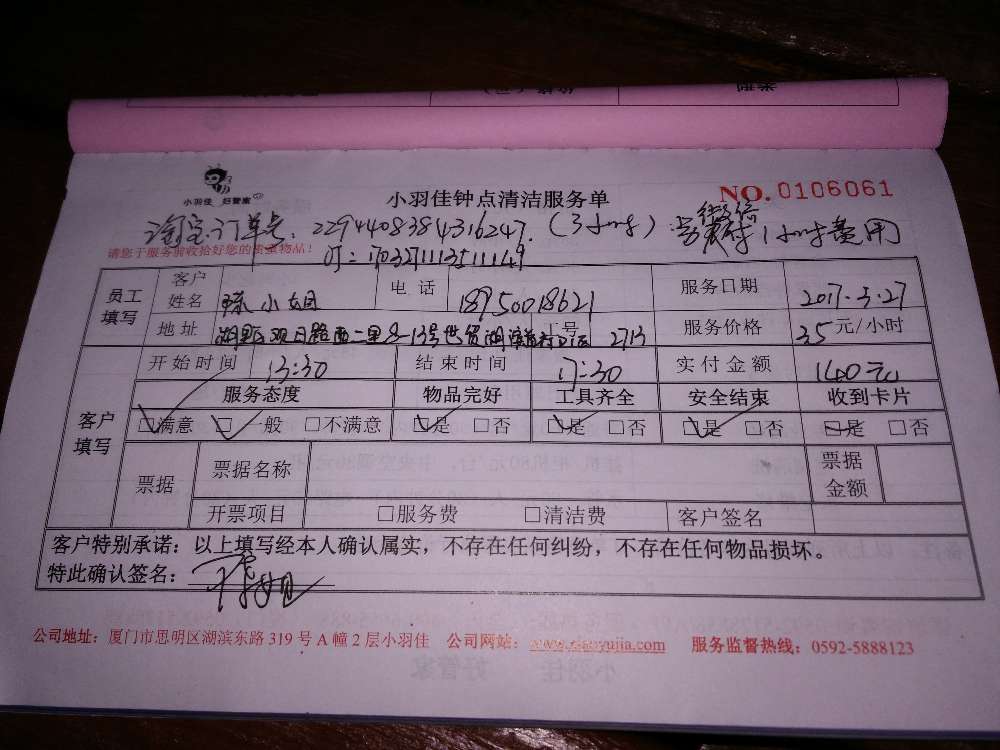 小羽佳 好管家
小羽佳钟点清洁服务单
NO.0106061
淘宝订单号:2294408384316247.(3小时) 另支付1小时费用
请您于服务前收拾好您的贵重物品!
员工填写 客户姓名 陈小姐 电话 18950018621 服务日期 2017.3.27
地址 工号 2713 服务价格 35元/小时
客户填写 开始时间 13:30 结束时间 17:30 实付金额 140元
服务态度 物品完好 工具齐全 安全结束 收到卡片
☑满意 ☑一般 □不满意 ☑是 □否 ☑是 □否 ☑是 □否 □是 □否
票据 票据名称 票据金额
开票项目 □服务费 □清洁费 客户签名
客户特别承诺:以上填写经本人确认属实,不存在任何纠纷,不存在任何物品损坏。
特此确认签名:
公司地址:厦门市思明区湖滨东路 319 号 A 幢 2 层小羽佳 公司网站:www.xiaoyujia.com 服务监督热线:0592-5888123